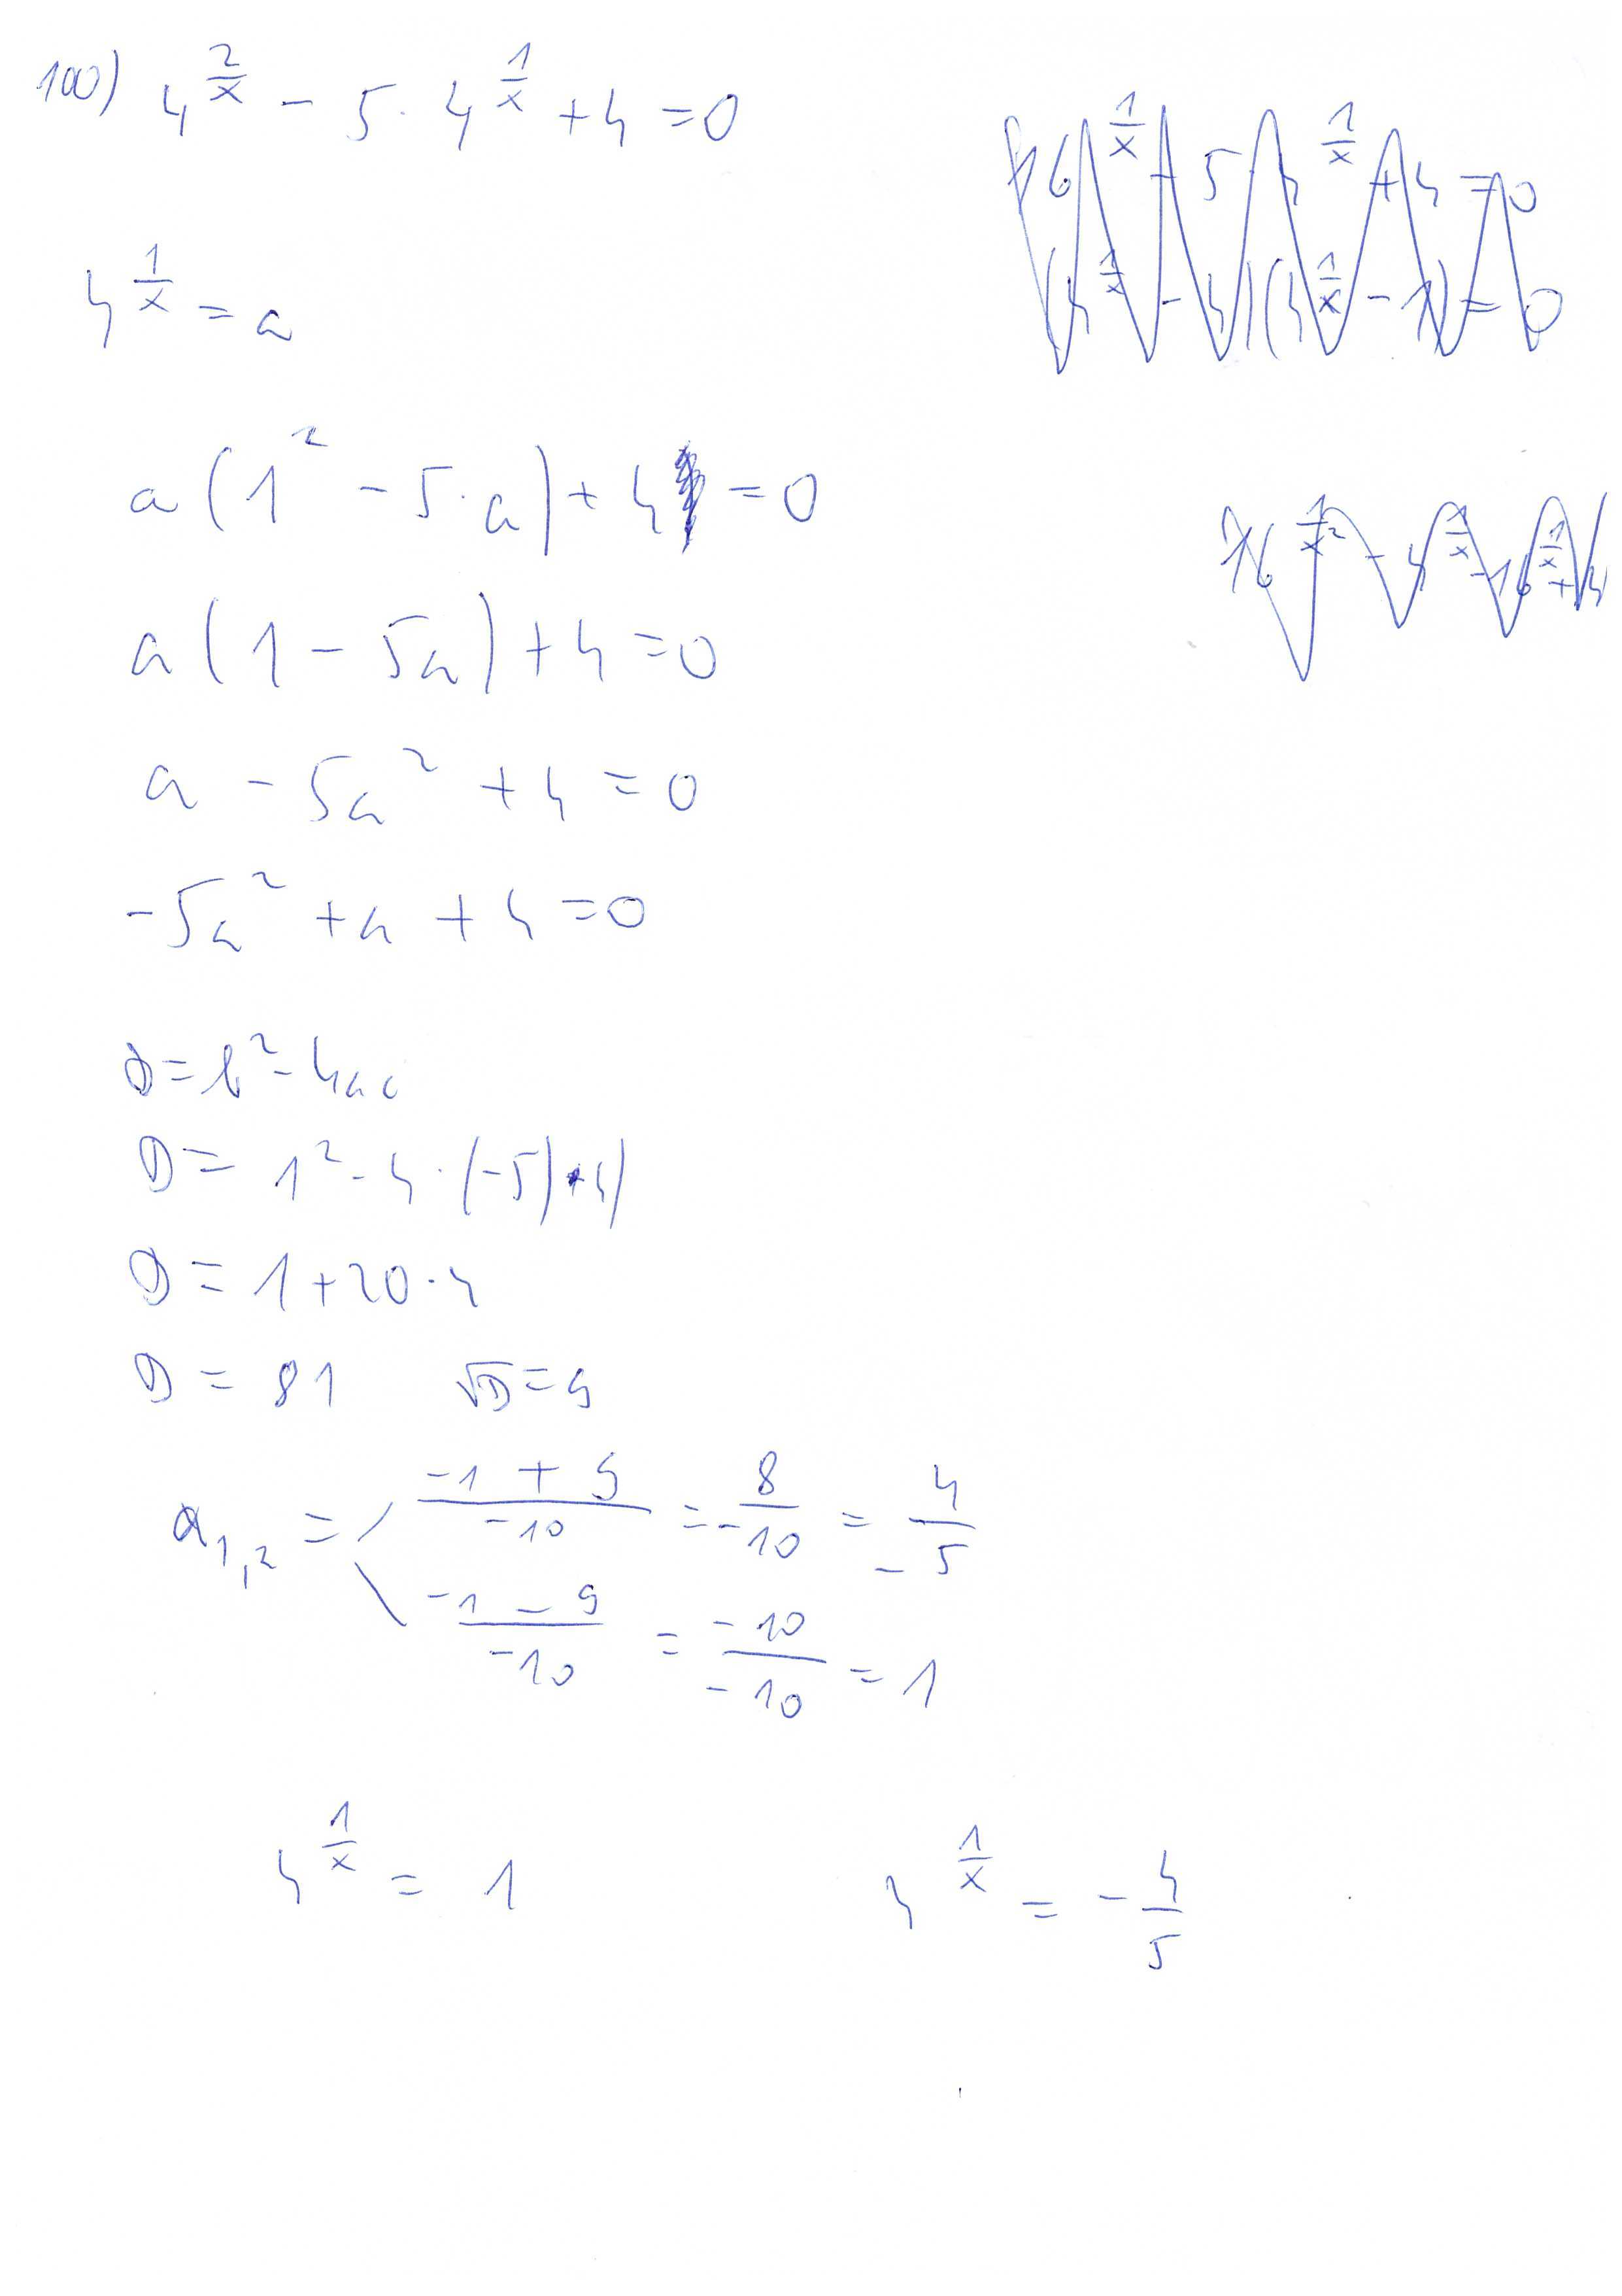 100) 4^(2/x) - 5 · 4^(1/x) + 4 = 0
16^(1/x) - 5 · 4^(1/x) + 4 = 0
(4^(1/x) - 4)(4^(1/x) - 1) = 0
4^(1/x) = a
a(1² - 5·a) + 4 = 0
a(1 - 5a) + 4 = 0
a - 5a² + 4 = 0
-5a² + a + 4 = 0
D = b² - 4ac
D = 1² - 4 · (-5) · 4)
D = 1 + 20 · 4
D = 81   √D = 9
a1,2 = (-1 + 9)/(-10) = 8/(-10) = -4/5
(-1 - 9)/(-10) = (-10)/(-10) = 1
4^(1/x) = 1   4^(1/x) = -4/5